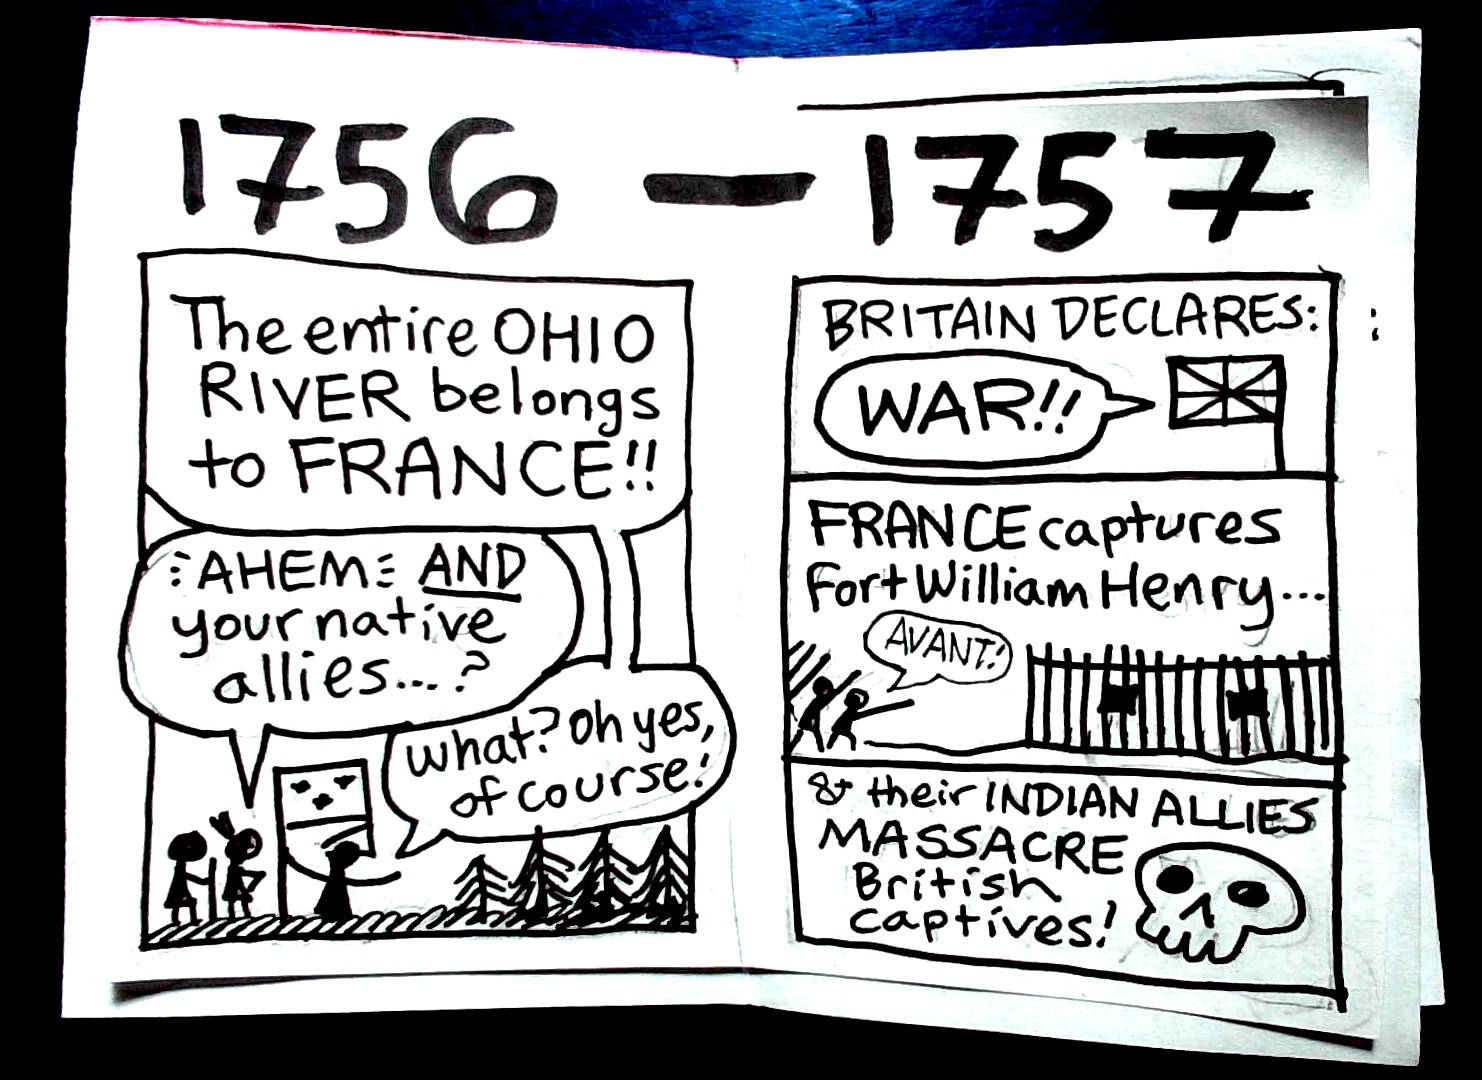 1756 — 1757
The entire OHIO
RIVER belongs
to FRANCE!!
AHEM AND
your native
allies...?
What? Oh yes,
of course!
BRITAIN DECLARES:
WAR!!
FRANCE captures
Fort William Henry...
AVANT!
& their INDIAN ALLIES
MASSACRE
British
captives!